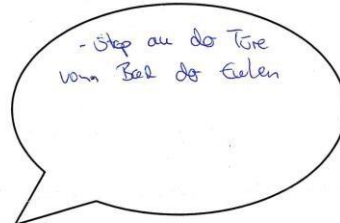 - Stop an der Türe
vom Bad der Eulen